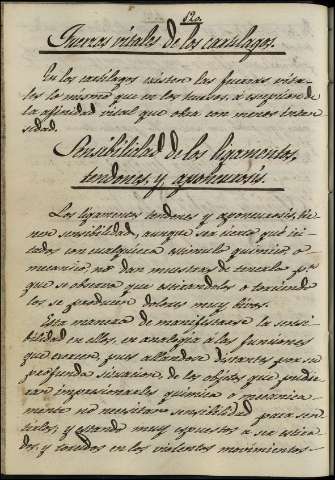 120.
Fuerzas vitales de los cartilagos.
En los cartilagos existen las fuerzas vita-
les lo mismo que en los huesos, á excepcion de
la afinidad vital que obra con menos inten-
sidad.
Sensibilidad de los ligamentos,
tendones, y aponeurosis.
Los ligamentos tendones y aponeurosis, tie-
nen sensibilidad, aunque sea cierto qué irri-
tados con cualquiera estimulo quimico, o
mecanico no dan muestras de tenerla, pr.
que se observa que estirandolos o torciendo
los se producen dolores muy vivos.
Esta manera de manifestarse la sensi-
bilidad en ellos, es analoga á las funciones
que exercen, pues allandose distantes por su
profunda situacion, de los objetos que pudie-
ran impresionarles quimica o mecanica-
mente no necesitan sensibilidad para sen-
tirlos, y estando muy expuestos a ser estira-
dos, y torcidos en los violentos movimientos-